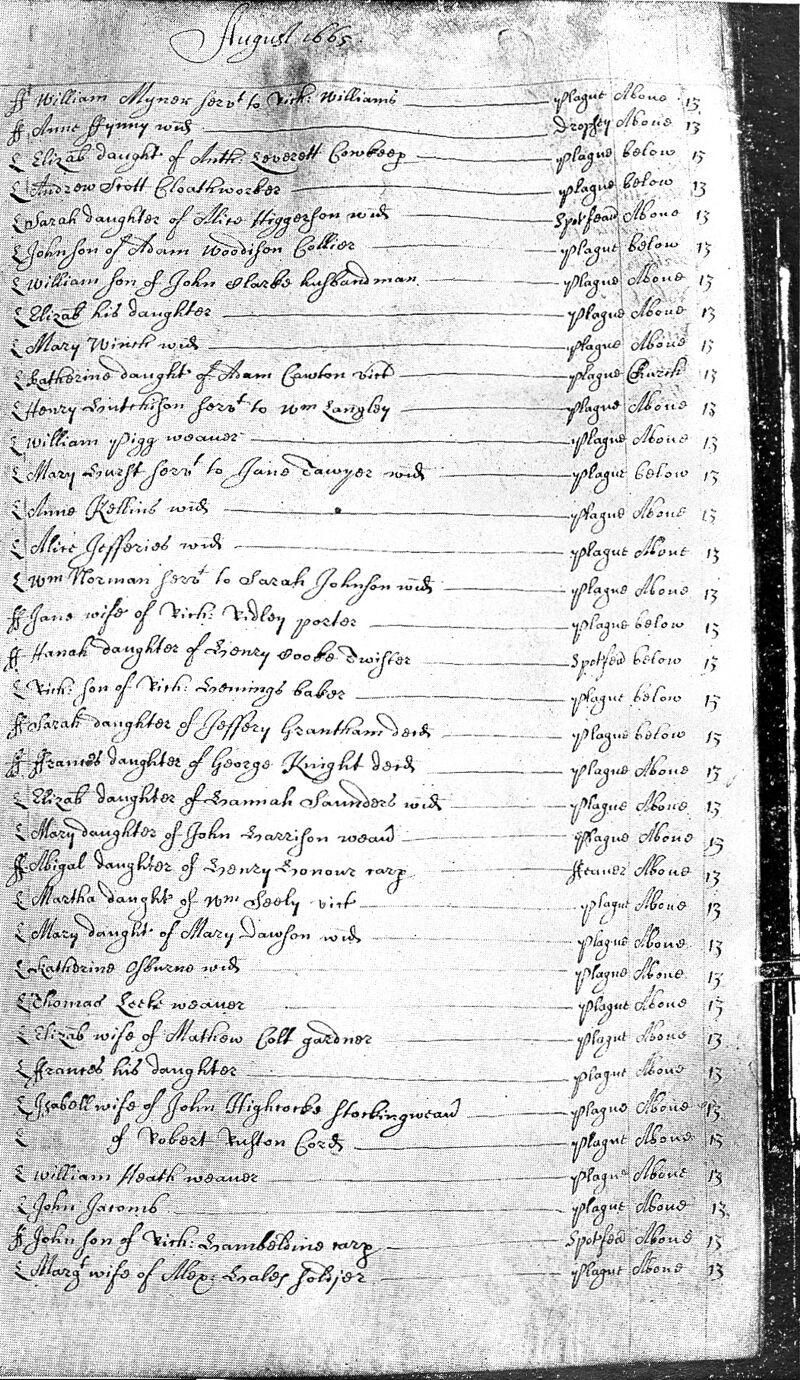 August 1665
ff William Myner serv^t to Rich: Williams plague Above 13
ff Anne ffynny wid dropsey Above 13
L Elizab daught of Anth: Leverett Cowkeep plague below 13
L Andrew Scott Cloathworker plague below 13
L Sarah daughter of Alice Higgerson wid Spotfeav Above 13
L John son of Adam Woodison Collier plague below 13
L William son of John Clarke husbandman plague Above 13
L Elizab his daughter plague Above 13
L Mary Winch wid plague Above 13
L Katherine daught of Adam Cawton vict plague Church 13
L Henry Hutchison serv^t to W^m Langley plague Above 13
L William Pigg weaver plague Above 13
L Mary Hurst serv^t to Jane Sawyer wid plague below 13
L Anne Kellins wid plague Above 13
L Alice Jefferies wid plague Above 13
L W^m Norman serv^t to Sarah Johnson wid plague Above 13
ff Jane wife of Rich: Ridley porter plague below 13
ff Hanah daughter of Henry Cooke Twister Spotfea below 13
L Rich: son of Rich: Henings baker plague below 13
ff Sarah daughter of Jeffery Grantham decd plague below 13
ff ffrances daughter of George Knight decd plague Above 13
L Elizab daughter of Hannah Saunders wid plague Above 13
L Mary daughter of John Harrison weav plague Above 13
ff Abigal daughter of Henry Honour carp ffeaver Above 13
L Martha daught of W^m Seely vict plague Above 13
L Mary daught of Mary Dawson wid plague Above 13
L Katherine Osburne wid plague Above 13
L Thomas Leeke weaver plague Above 13
L Elizab wife of Mathew Colt gardner plague Above 13
L ffrances his daughter plague Above 13
L Isabell wife of John Highcocke Stockingweav plague Above 13
L of Robert Rishton Cord plague Above 13
L William Heath weaver plague Above 13
L John Jacomb plague Above 13
ff John son of Rich: Hambeldine carp Spotfea Above 13
L Marg^t wife of Alex: Hales soldjer plague Above 13